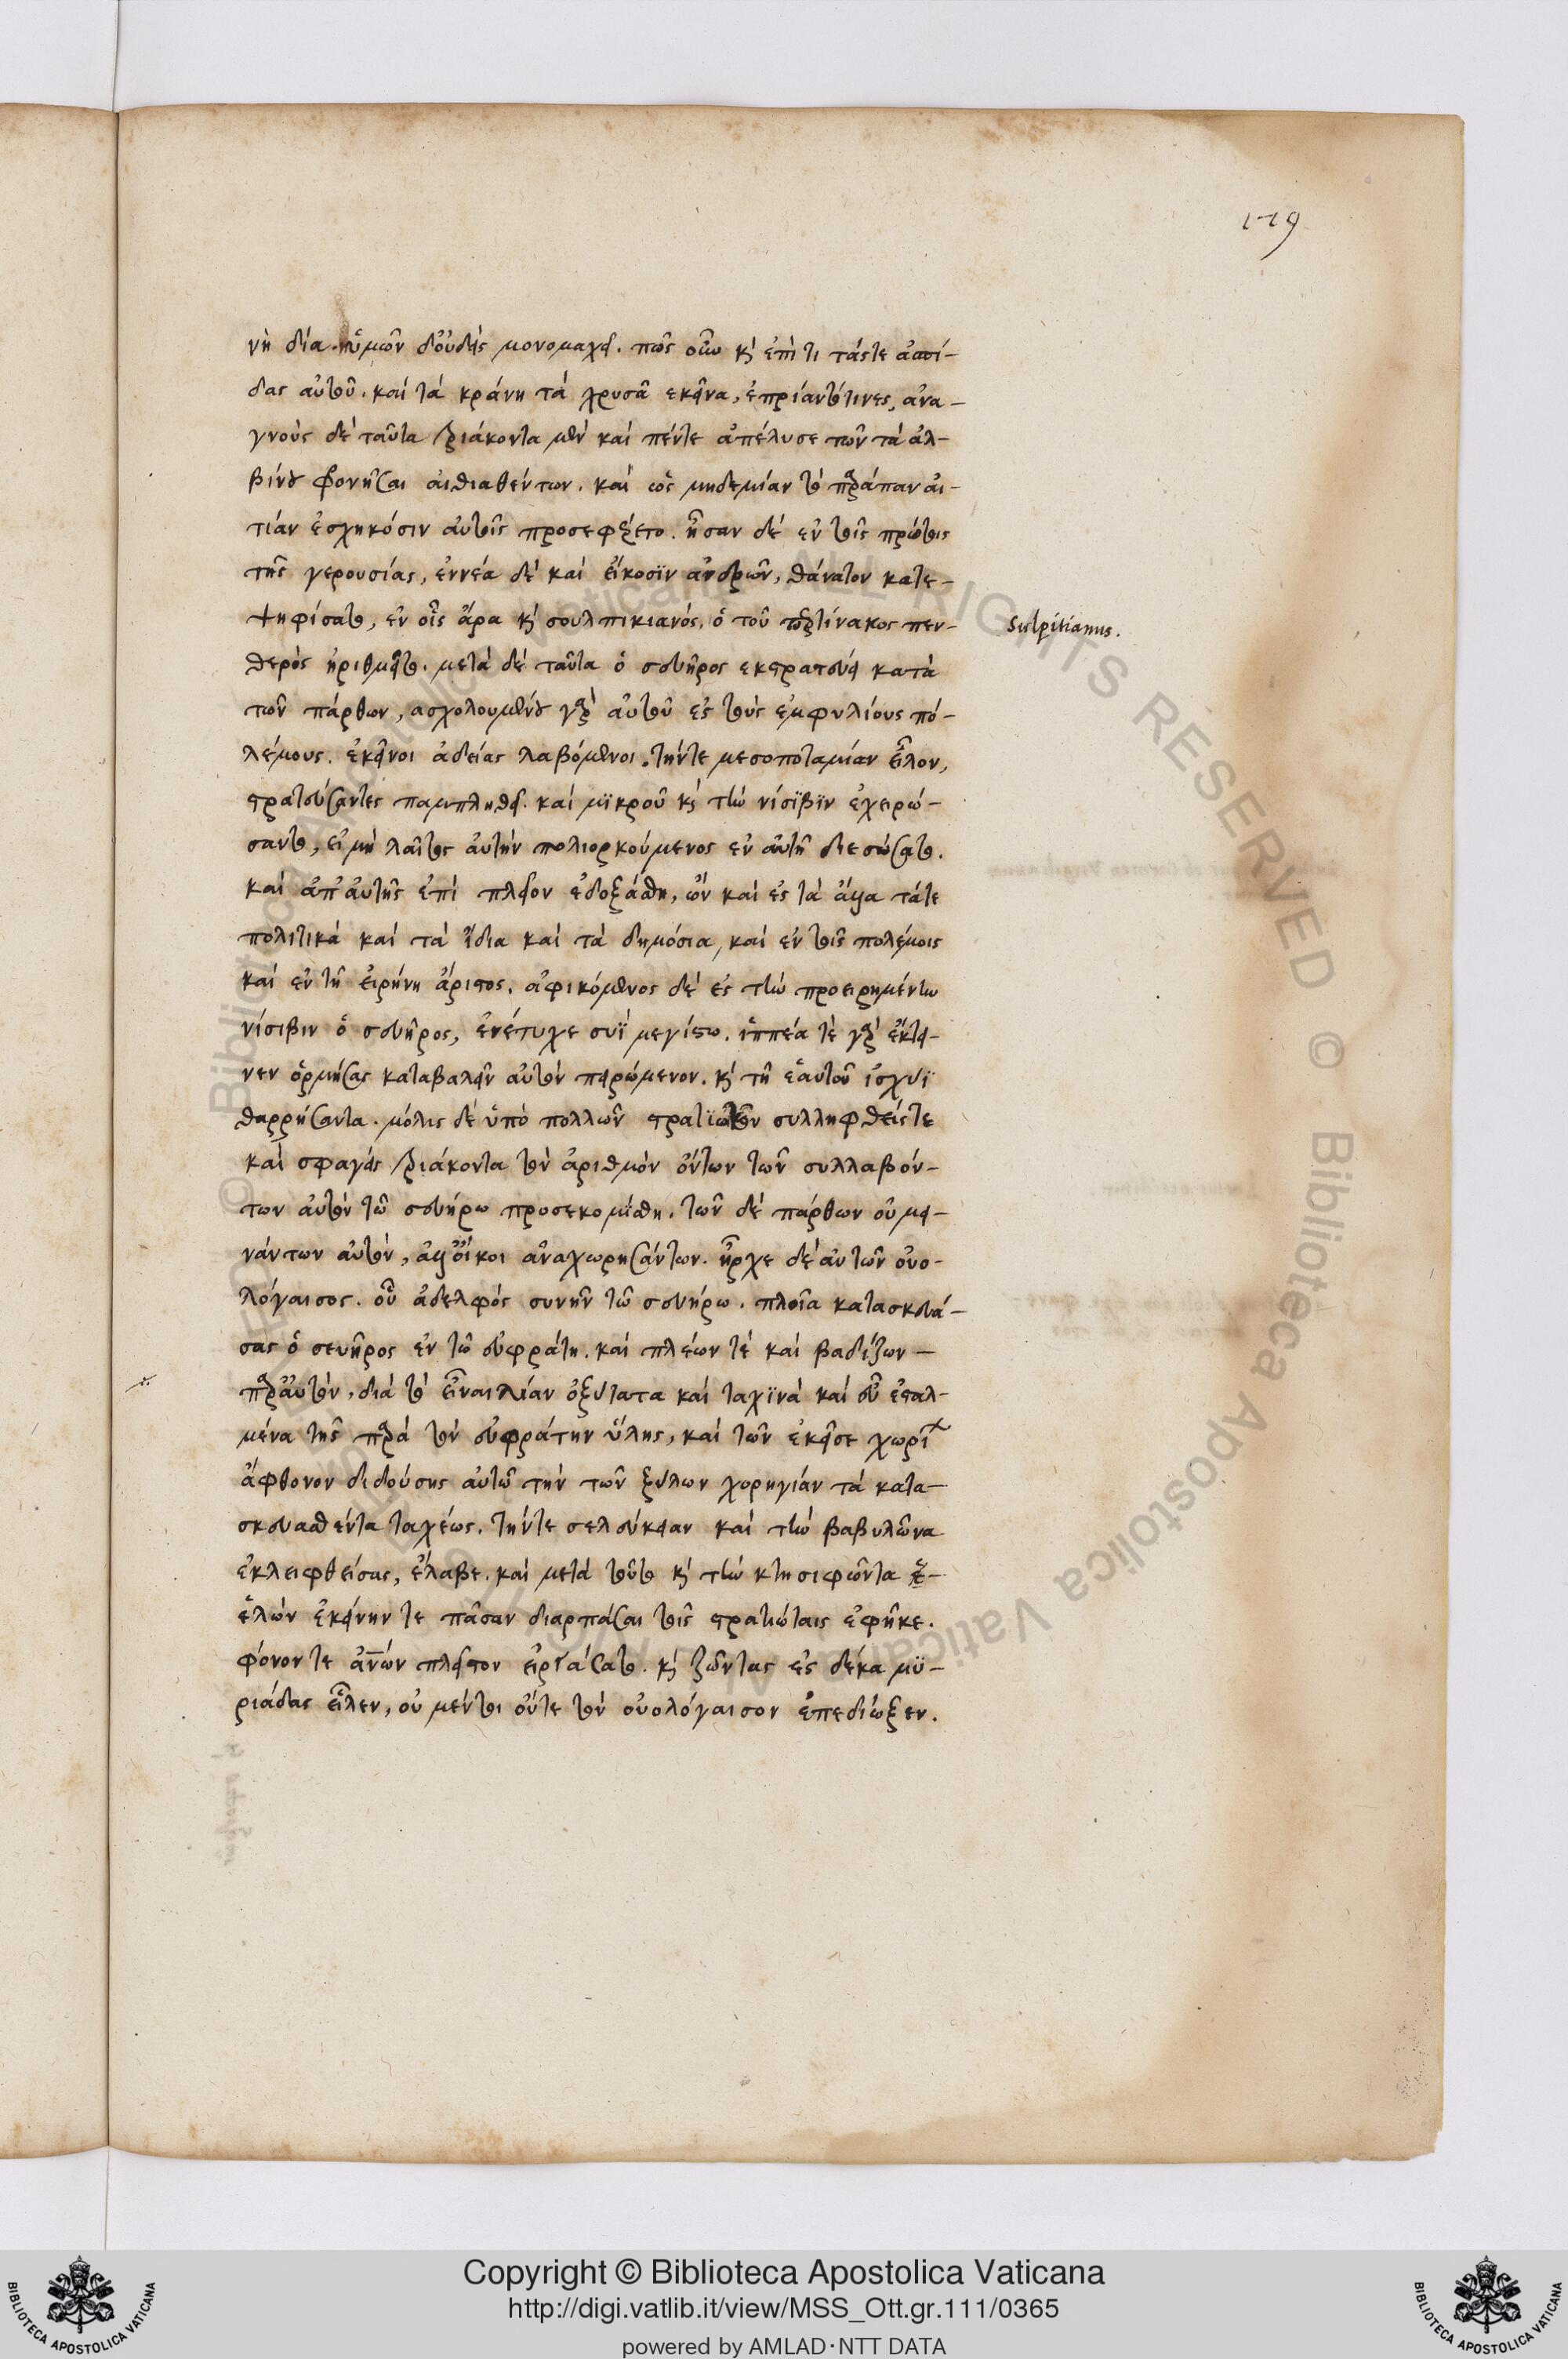 179
νὴ δία. ὑμῶν δ' οὐδεὶς μονομαχεῖ. πῶς οὖν καὶ ἐπὶ τί τάς τε ἀσπί-
δας αὐτοῦ. καὶ τὰ κράνη τὰ χρυσᾶ ἐκεῖνα, ἐπρίαντό τινες, ἀνα-
γνοὺς δὲ ταῦτα τριάκοντα μὲν καὶ πέντε ἀπέλυσε τῶν τὰ ἀλ-
βίνου φρονῆσαι αἰτιαθέντων. καὶ ὡς μηδεμίαν τὸ παράπαν αἰ-
τίαν ἐσχηκόσιν αὐτοῖς προσεφέρετο. ἦσαν δὲ ἐν τοῖς πρώτοις
τῆς γερουσίας, ἐννέα δὲ καὶ εἴκοσϊν ἀνδρῶν, θάνατον κατε-
ψηφίσατο, ἐν οἷς ἄρα καὶ σουλπικιανός. ὁ τοῦ περτίνακος πεν-
Sulpitianus.
θερὸς ἠριθμεῖτο. μετὰ δὲ ταῦτα ὁ σευῆρος ἐκστρατεύει κατὰ
τῶν πάρθων, ἀσχολουμένου γὰρ αὐτοῦ ἐς τοὺς ἐμφυλίους πο-
λέμους. ἐκεῖνοι ἀδείας λαβόμενοι. τήν τε μεσοποταμίαν εἷλον,
στρατεύσαντες παμπληθεί. καὶ μϊκροῦ καὶ τὴν νίσϊβϊν ἐχειρώ-
σαντο, εἰ μὴ λαῖτος αὐτὴν πολιορκούμενος ἐν αὐτῇ διεσώσατο.
καὶ ἀπ' αὐτῆς ἐπὶ πλεῖον ἐδοξάσθη, ὢν καὶ ἐς τὰ ἄλλα τά τε
πολιτικὰ καὶ τὰ ἴδια καὶ τὰ δημόσια, καὶ ἐν τοῖς πολέμοις
καὶ ἐν τῇ εἰρήνῃ ἄριστος. ἀφικόμενος δὲ ἐς τὴν προειρημένην
νίσιβιν ὁ σευῆρος, ἐνέτυχε συῒ μεγίστῳ. ἱππέα τε γὰρ ἔκτει-
νεν ὁρμήσας καταβαλεῖν αὐτὸν πειρώμενον. καὶ τῇ ἑαυτοῦ ἰσχύϊ
θαρρήσαντα. μόλις δὲ ὑπὸ πολλῶν στρατϊωτῶν συλληφθείς τε
καὶ σφαγεὶς τριάκοντα τὸν ἀριθμὸν ὄντων τῶν συλλαβόν-
των αὐτὸν τῷ σευήρῳ προσεκομίσθη. τῶν δὲ πάρθων οὐ μει-
νάντων αὐτὸν, ἀλλ' οἴκοι ἀναχωρησάντων. ἦρχε δὲ αὐτῶν οὐο-
λόγαισος. οὗ ἀδελφὸς συνῆν τῷ σευήρῳ. πλοῖα κατασκευά-
σας ὁ σευῆρος ἐν τῷ εὐφράτῃ. καὶ πλέων τε καὶ βαδίζων
παρ' αὐτὸν, διὰ τὸ εἶναι λίαν ὀξύτατα καὶ ταχϊνὰ καὶ εὖ ἐσταλ-
μένα τῆς παρὰ τὸν εὐφράτην ὕλης, καὶ τῶν ἐκεῖσε χωρί
ἄφθονον διδούσης αὐτῷ τὴν τῶν ξύλων χορηγίαν τὰ κατα-
σκευασθέντα ταχέως. τήν τε σελεύκειαν καὶ τὴν βαβυλῶνα
ἐκλειφθείσας, ἔλαβε. καὶ μετὰ τοῦτο καὶ τὴν κτησιφῶντα
ἑλὼν ἐκείνην τε πᾶσαν διαρπάσαι τοῖς στρατιώταις ἐφῆκε.
φόνον τε ἀνων πλεῖστον εἰργάσατο. καὶ ζῶντας ἐς δέκα μϋ-
ριάδας εἷλεν, οὐ μέντοι οὔτε τὸν οὐολόγαισον ἐπεδίωξεν.
© Biblioteca Apostolica Vaticana ALL RIGHTS RESERVED © Biblioteca Apostolica Vaticana
BIBLIOTECA APOSTOLICA VATICANA
Copyright © Biblioteca Apostolica Vaticana
http://digi.vatlib.it/view/MSS_Ott.gr.111/0365
powered by AMLAD·NTT DATA
BIBLIOTECA APOSTOLICA VATICANA